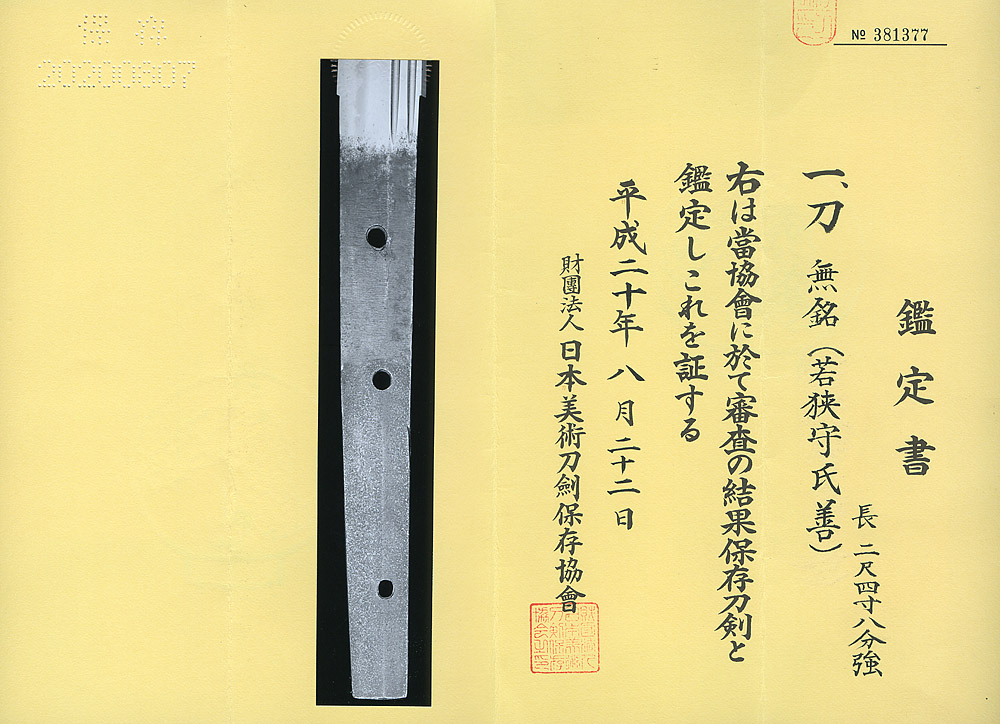 № 381377
鑑定書
一、刀 無銘(若狭守氏善)
長 二尺四寸八分強
右は當協會に於て審査の結果保存刀剣と
鑑定しこれを証する
平成二十年 八 月 二十二 日
財團法人 日本美術刀劍保存協會
保存
20200807